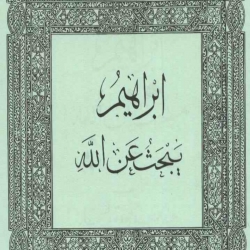 ابراهيمُ
يَبْحَثُ عَنِ اللَّهِ